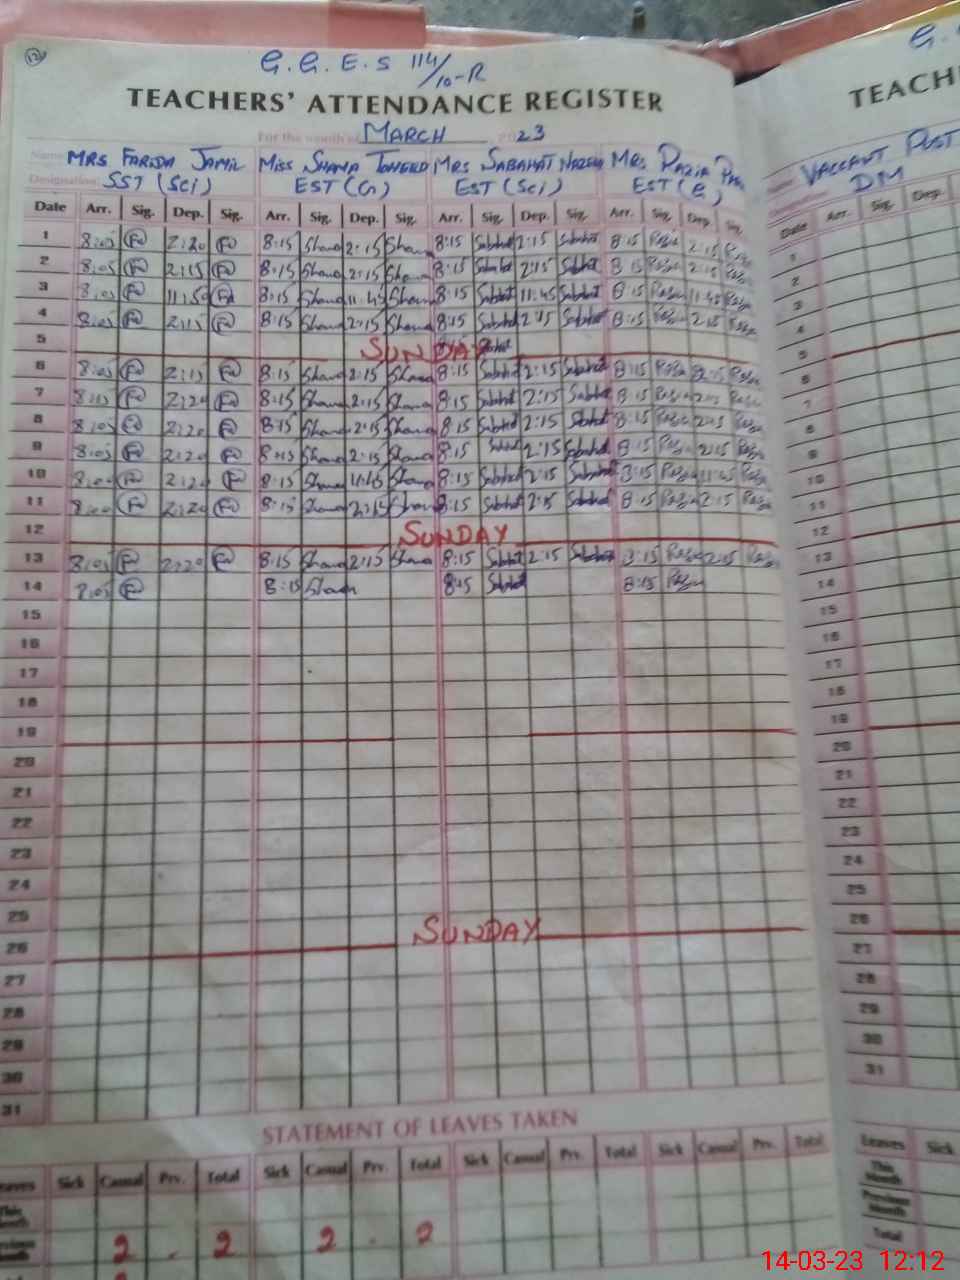 12
G.G.E.S 114/10-R
TEACHERS' ATTENDANCE REGISTER
TEACH
For the month of MARCH 2023
Name MRS FARIDA JAMIL Miss SHAMA TOHEED MRS SABAHAT NAZEER MRS RAZIA
VACCANT POST
Designation SST (SCI) EST (G) EST (Sci) EST (E)
DM
Date Arr. Sig. Dep. Sig. Arr. Sig. Dep. Sig. Arr. Sig. Dep. Sig. Arr. Sig. Dep. Sig.
Date Arr. Sig. Dep.
1 8:05 2:20 8:15 Shama 2:15 Shama 8:15 Sabahat 2:15 Sabahat 8:15 Razia 2:15 Razia
2 8:05 2:15 8:15 Shama 2:15 Shama 8:15 Sabahat 2:15 Sabahat 8:15 Razia 2:15 Razia
3 8:05 11:50 8:15 Shama 11:45 Shama 8:15 Sabahat 11:45 Sabahat 8:15 Razia 11:45 Razia
4 8:05 2:15 8:15 Shama 2:15 Shama 8:15 Sabahat 2:15 Sabahat 8:15 Razia 2:15 Razia
5 SUNDAY
6 8:05 2:15 8:15 Shama 2:15 Shama 8:15 Sabahat 2:15 Sabahat 8:15 Razia 2:15 Razia
7 8:05 2:20 8:15 Shama 2:15 Shama 8:15 Sabahat 2:15 Sabahat 8:15 Razia 2:15 Razia
8 8:05 2:20 8:15 Shama 2:15 Shama 8:15 Sabahat 2:15 Sabahat 8:15 Razia 2:15 Razia
9 8:05 2:20 8:15 Shama 2:15 Shama 8:15 Sabahat 2:15 Sabahat 8:15 Razia 2:15 Razia
10 8:00 2:20 8:15 Shama 11:45 Shama 8:15 Sabahat 2:15 Sabahat 8:15 Razia 11:45 Razia
11 8:00 2:20 8:15 Shama 2:15 Shama 8:15 Sabahat 2:15 Sabahat 8:15 Razia 2:15 Razia
12 SUNDAY
13 8:05 2:20 8:15 Shama 2:15 Shama 8:15 Sabahat 2:15 Sabahat 8:15 Razia 2:15 Razia
14 8:05 8:15 Shama 8:15 Sabahat 8:15 Razia
15
16
17
18
19
20
21
22
23
24
25
SUNDAY
26
27
28
29
30
31
1
2
3
4
5
6
7
8
9
10
11
12
13
14
15
16
17
18
19
20
21
22
23
24
25
26
27
28
29
30
31
STATEMENT OF LEAVES TAKEN
Leaves Sick Casual Prv. Total Sick Casual Prv. Total Sick Casual Prv. Total Sick Casual Prv. Total
This Month
Previous Month 2 . 2 2 . 2
Leaves Sick
This Month
Previous Month
Total
14-03-23 12:12